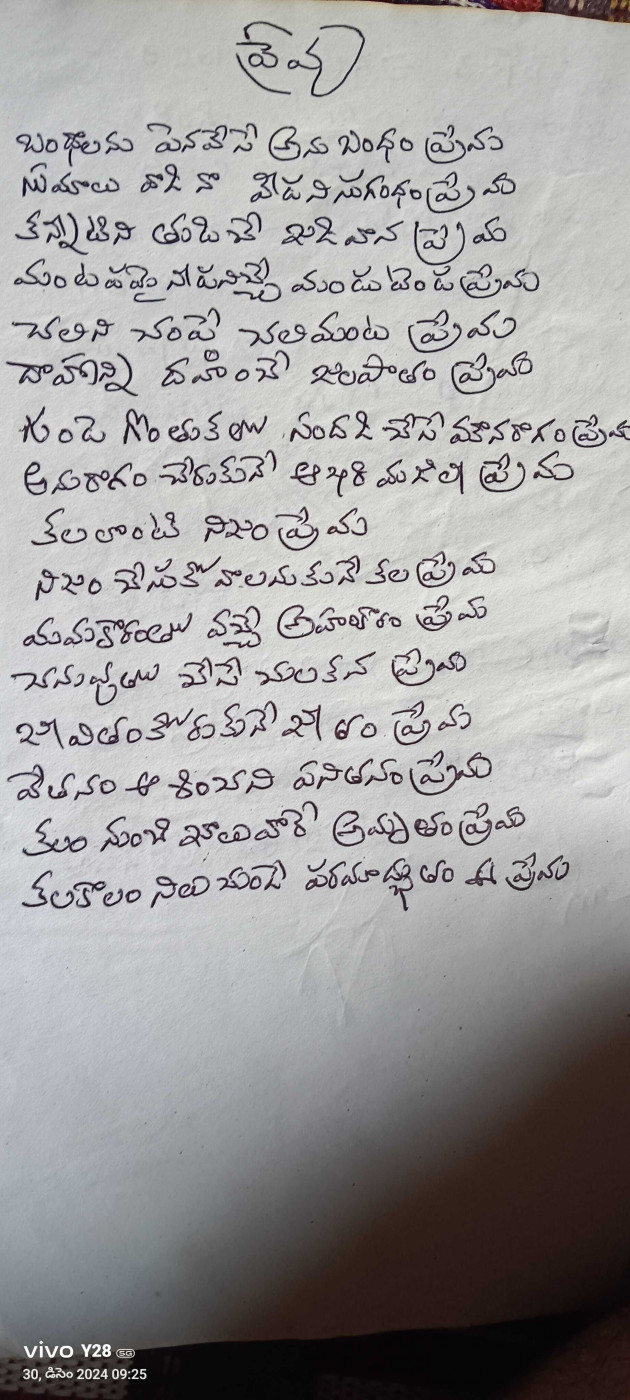 ప్రేమ
బంధాలను పెనవేసే అను బంధం ప్రేమ
సుమాలు వాడినా వీడని సుగంధం ప్రేమ
కన్నీటిని తుడిచే జడివాన ప్రేమ
మంటపమై నీడనిచ్చే మండుటెండ ప్రేమ
చలిని చంపే చలిమంట ప్రేమ
దాహాన్ని దహించే జలపాతం ప్రేమ
గుండె గొంతుకలో సందడి చేసే మౌనరాగం ప్రేమ
అనురాగం చేరుకునే ఆఖరి మజిలీ ప్రేమ
కలలాంటి నిజం ప్రేమ
నిజం చేసుకోవాలనుకునే కల ప్రేమ
మమకారంతో వచ్చే అహంకారం ప్రేమ
చనువుతో చేసే చులకన ప్రేమ
జీవితం కోరుకునే జీతం ప్రేమ
వేతనం ఆశించని పనితనం ప్రేమ
కలం నుంచి జాలువారే అమృతం ప్రేమ
కలకాలం నిలిచుండే పరమాద్భుతం ఈ ప్రేమ
vivo Y28 5G
30, డిసెం 2024 09:25